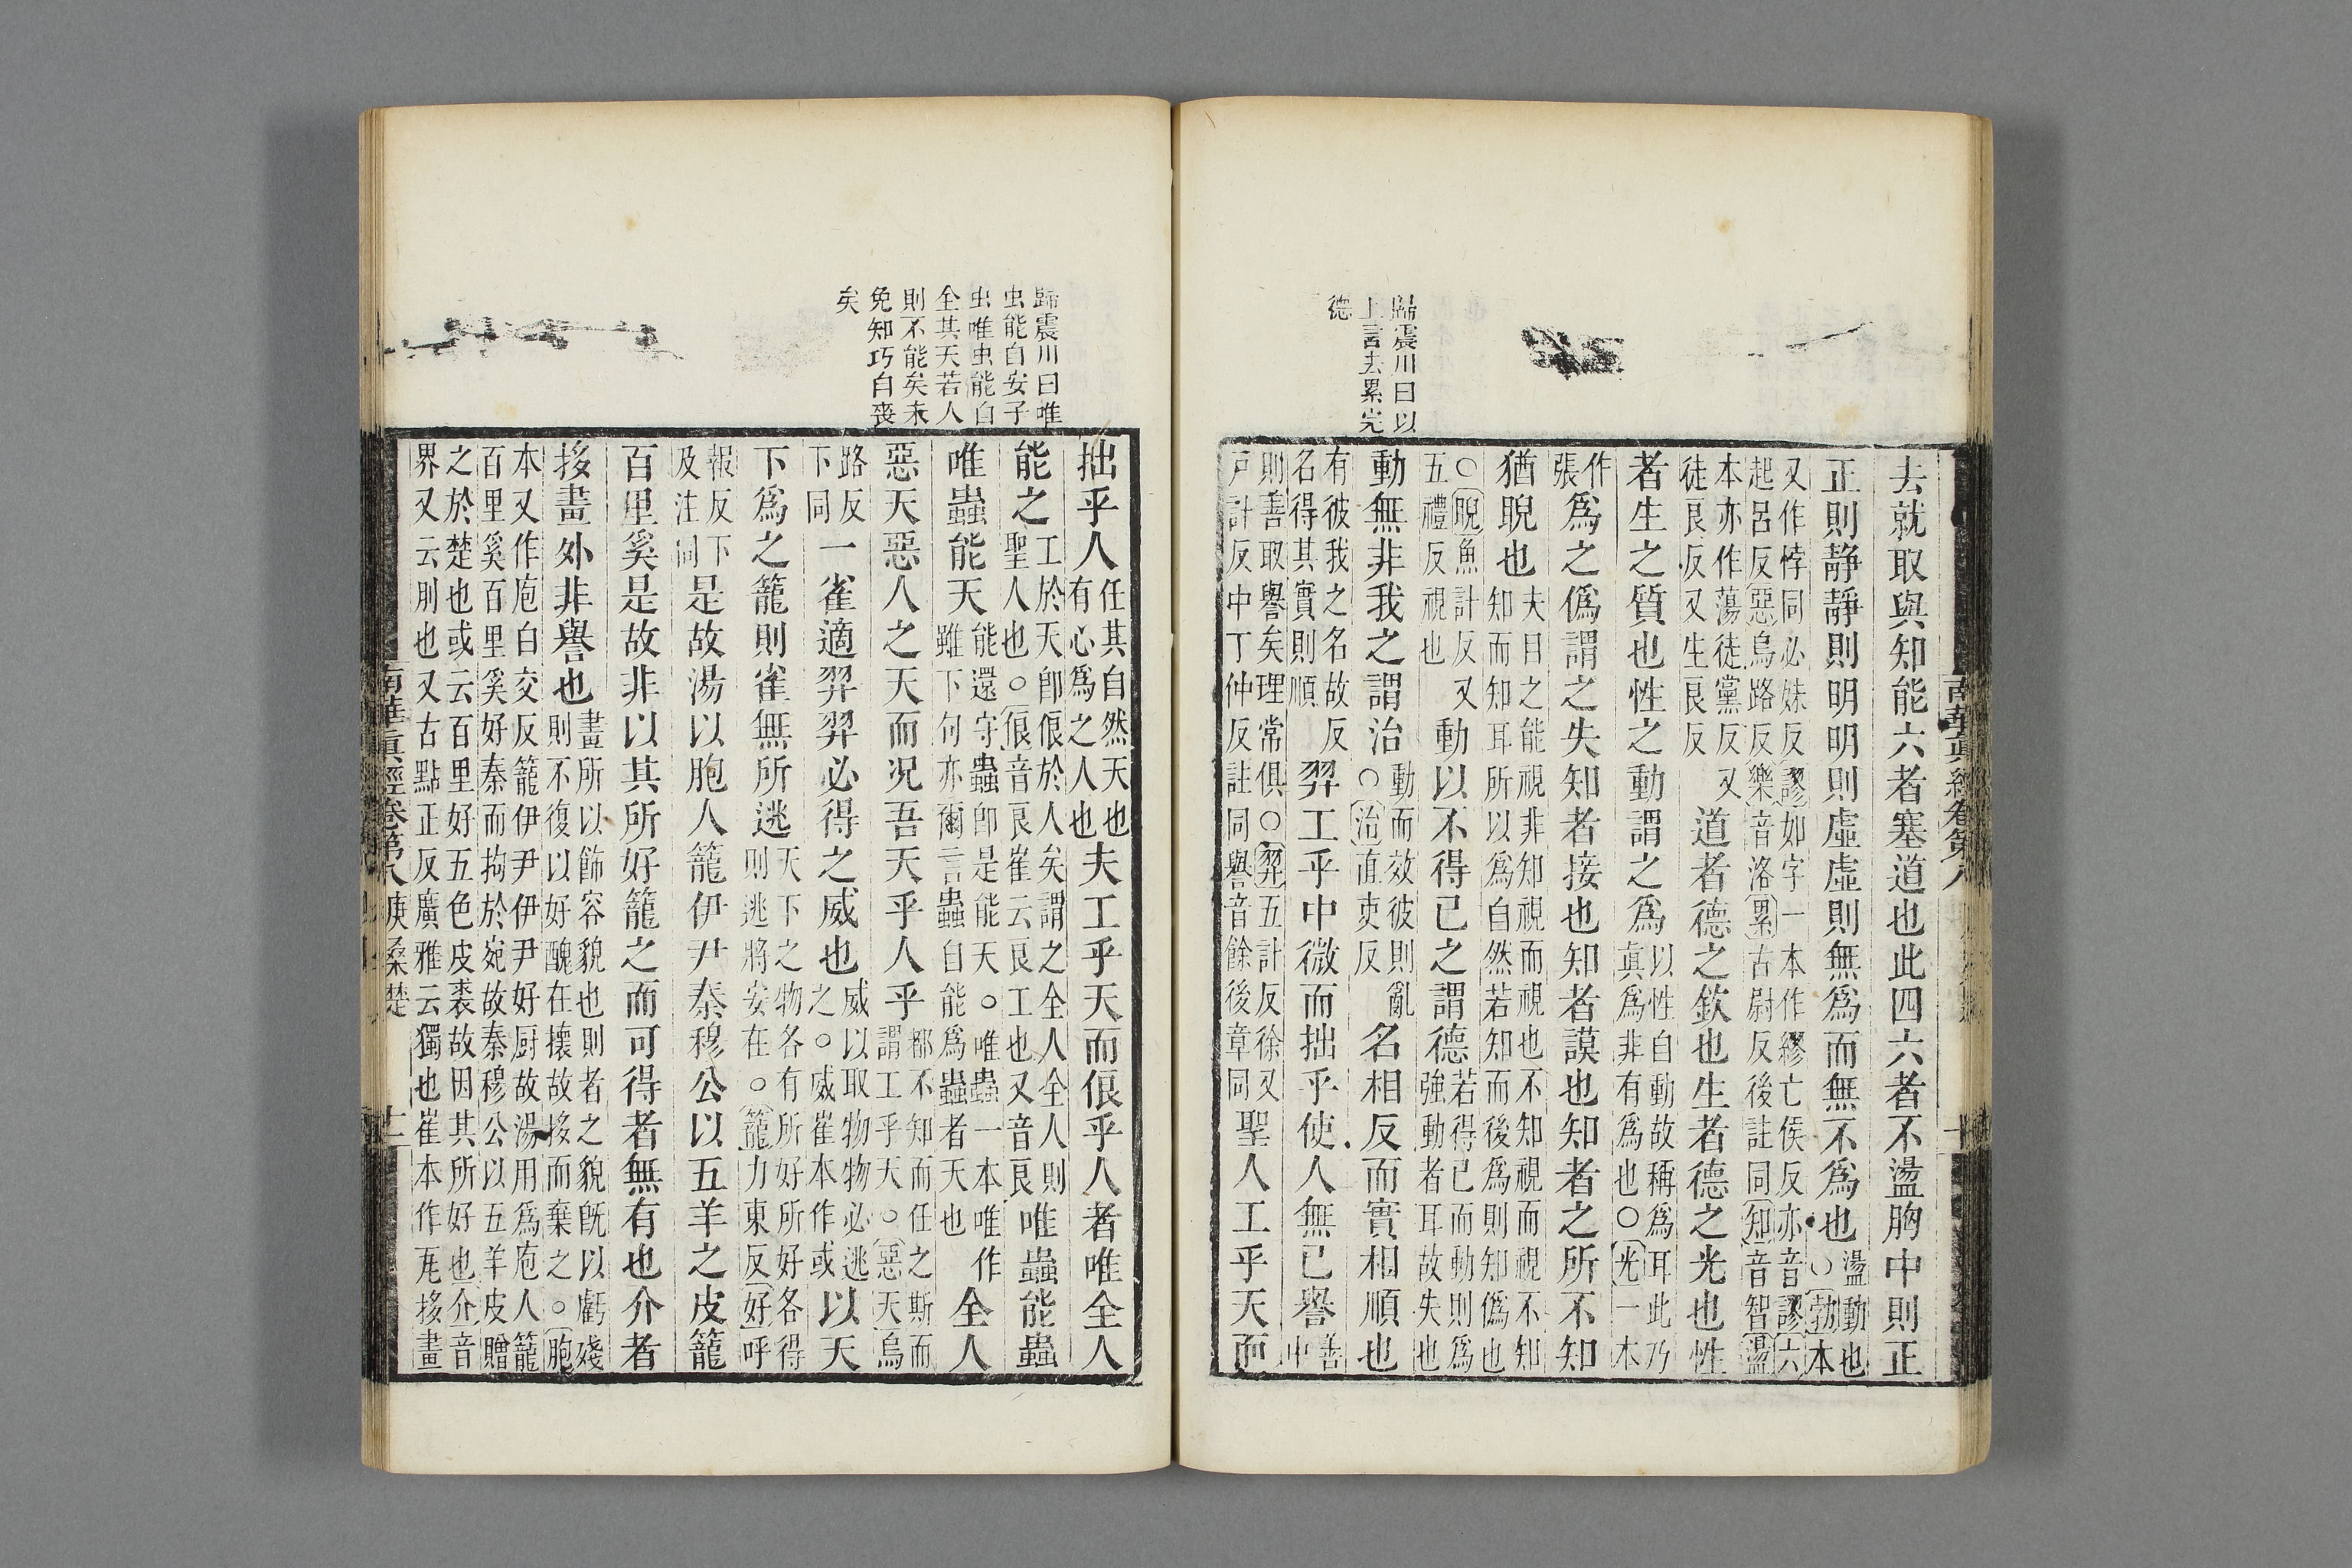 歸震川曰以
上言去累完
德
南華真經卷第八
去就取與知能六者塞道也此四六者不盪胸中則正
正則静静則明明則虛虛則無爲而無不爲也盪動也○勃本
又作悖同必妹反謬如字一本作繆亡侯反亦音謬六
起呂反惡烏路反樂音洛累古尉反後註同知音智盪
本亦作蕩徒黨反又徒艮反又生艮反道者德之欽也生者德之光也性
者生之質也性之動謂之爲以性自動故稱爲耳此乃真爲非有爲也○光一本
作張爲之僞謂之失知者接也知者謨也知者之所不知
猶睨也夫目之能視非知視而視也不知視而視不知知而知耳所以爲自然若知而後爲則知僞也
○睨魚計反又五禮反視也動以不得已之謂德若得已而動則爲強動者耳故失也
動無非我之謂治動而效彼則亂○治直吏反名相反而實相順也
有彼我之名故反名得其實則順羿工乎中微而拙乎使人無已譽善中
則善取譽矣理常俱○羿五計反徐又戶計反中丁仲反註同譽音餘後章同聖人工乎天而
歸震川曰唯
虫能自安于
虫唯虫能自
全其天若人
則不能矣未
免知巧自喪
矣
拙乎人任其自然天也有心爲之人也夫工乎天而俍乎人者唯全人
能之工於天卽俍於人矣謂之全人全人則聖人也○俍音良崔云良工也又音良唯蟲能蟲
唯蟲能天能還守蟲卽是能天○唯蟲一本唯作雖下句亦爾言蟲自能爲蟲者天也全人
惡天惡人之天而况吾天乎人乎都不知而任之斯而謂工乎天○惡天烏
路反下同一雀適羿羿必得之威也威以取物物必逃之○威崔本作或以天
下爲之籠則雀無所逃天下之物各有所好所好各得則逃將安在○籠力東反好呼
報反下及注同是故湯以胞人籠伊尹秦穆公以五羊之皮籠
百里奚是故非以其所好籠之而可得者無有也介者
拸畫外非譽也畫所以飾容貌也則者之貌旣以虧殘則不復以好醜在懷故拸而棄之○胞
本又作庖白交反籠伊尹伊尹好厨故湯用爲庖人籠
百里奚百里奚好秦而拘於宛故秦穆公以五羊皮贖
之於楚也或云百里好五色皮裘故因其所好也介音
界又云刖也又古點正反廣雅云獨也崔本作兀拸畫
南華真經卷第八 庚桑楚 十一